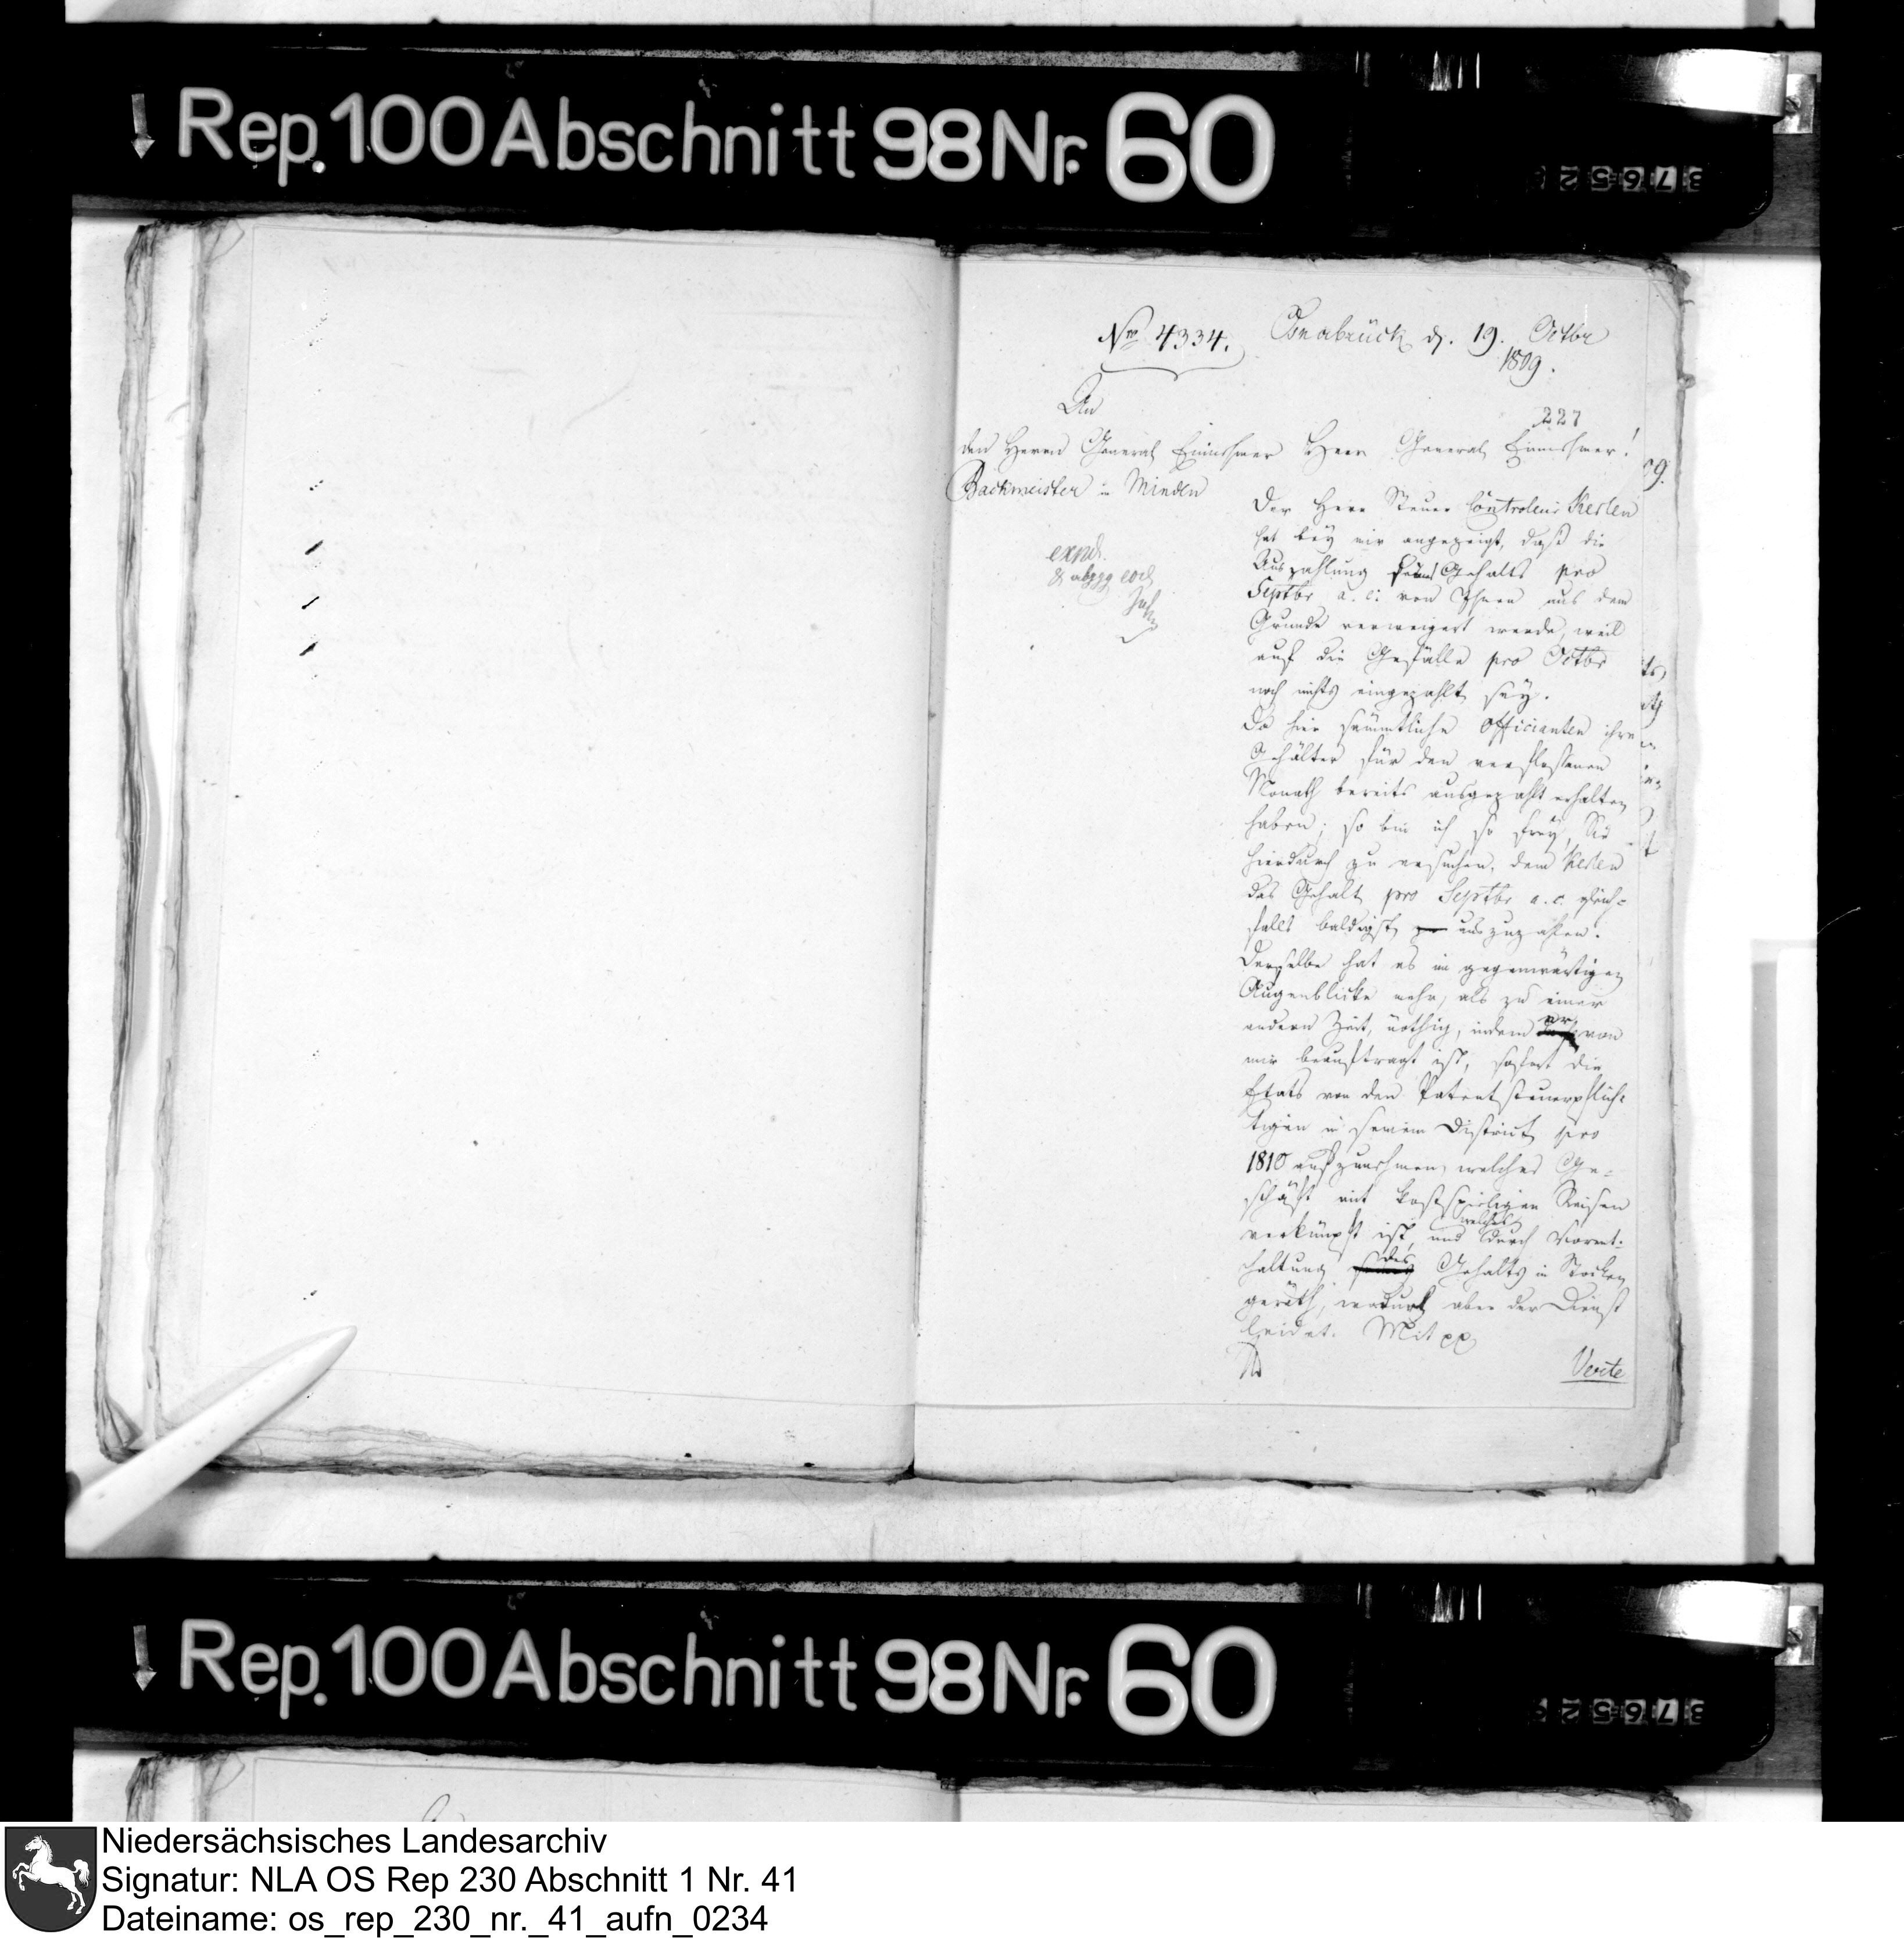 Rep. 100 Abschnitt 98 Nr. 60
Nro 4334.
Osnabrück d. 19. Octbr
1809.
227
An
den Herrn General Einnehmer
Backmeister in Minden
expd.
& abggg eod
Herr General Einnehmer!
Der Herr Steuer Controleur Kerlen
hat bey mir angezeigt, daß die
Auszahlung seines Gehalts pro
Septbr a. c. von Ihnen aus dem
Grunde verweigert werde, weil
auf die Gefälle pro Octbr
noch nichts eingezahlt sey.
Da hier sämmtliche Officianten ihre
Gehälter für den verflossenen
Monath bereits ausgezahlt erhalten
haben; so bin ich so frey, Sie
hierdurch zu ersuchen, dem Kerlen
das Gehalt pro Septbr a. c. gleich=
falls baldigst auszuzahlen.
Derselbe hat es im gegenwärtigen
Augenblicke mehr, als zu einer
andern Zeit, nöthig, indem er von
mir beauftragt ist, sofort die
Etats von den Patentsteuerpflich=
tigen in seinem District pro
1810 aufzunehmen, welches Ge=
schäft mit kostspieligen Reisen
verknüpft ist, und welches durch Vorent=
haltung des Gehalts in Stocken
geräth, wodurch aber der Dienst
leidet. Mit pp
Verte
Rep. 100 Abschnitt 98 Nr. 60
Niedersächsisches Landesarchiv
Signatur: NLA OS Rep 230 Abschnitt 1 Nr. 41
Dateiname: os_rep_230_nr._41_aufn_0234